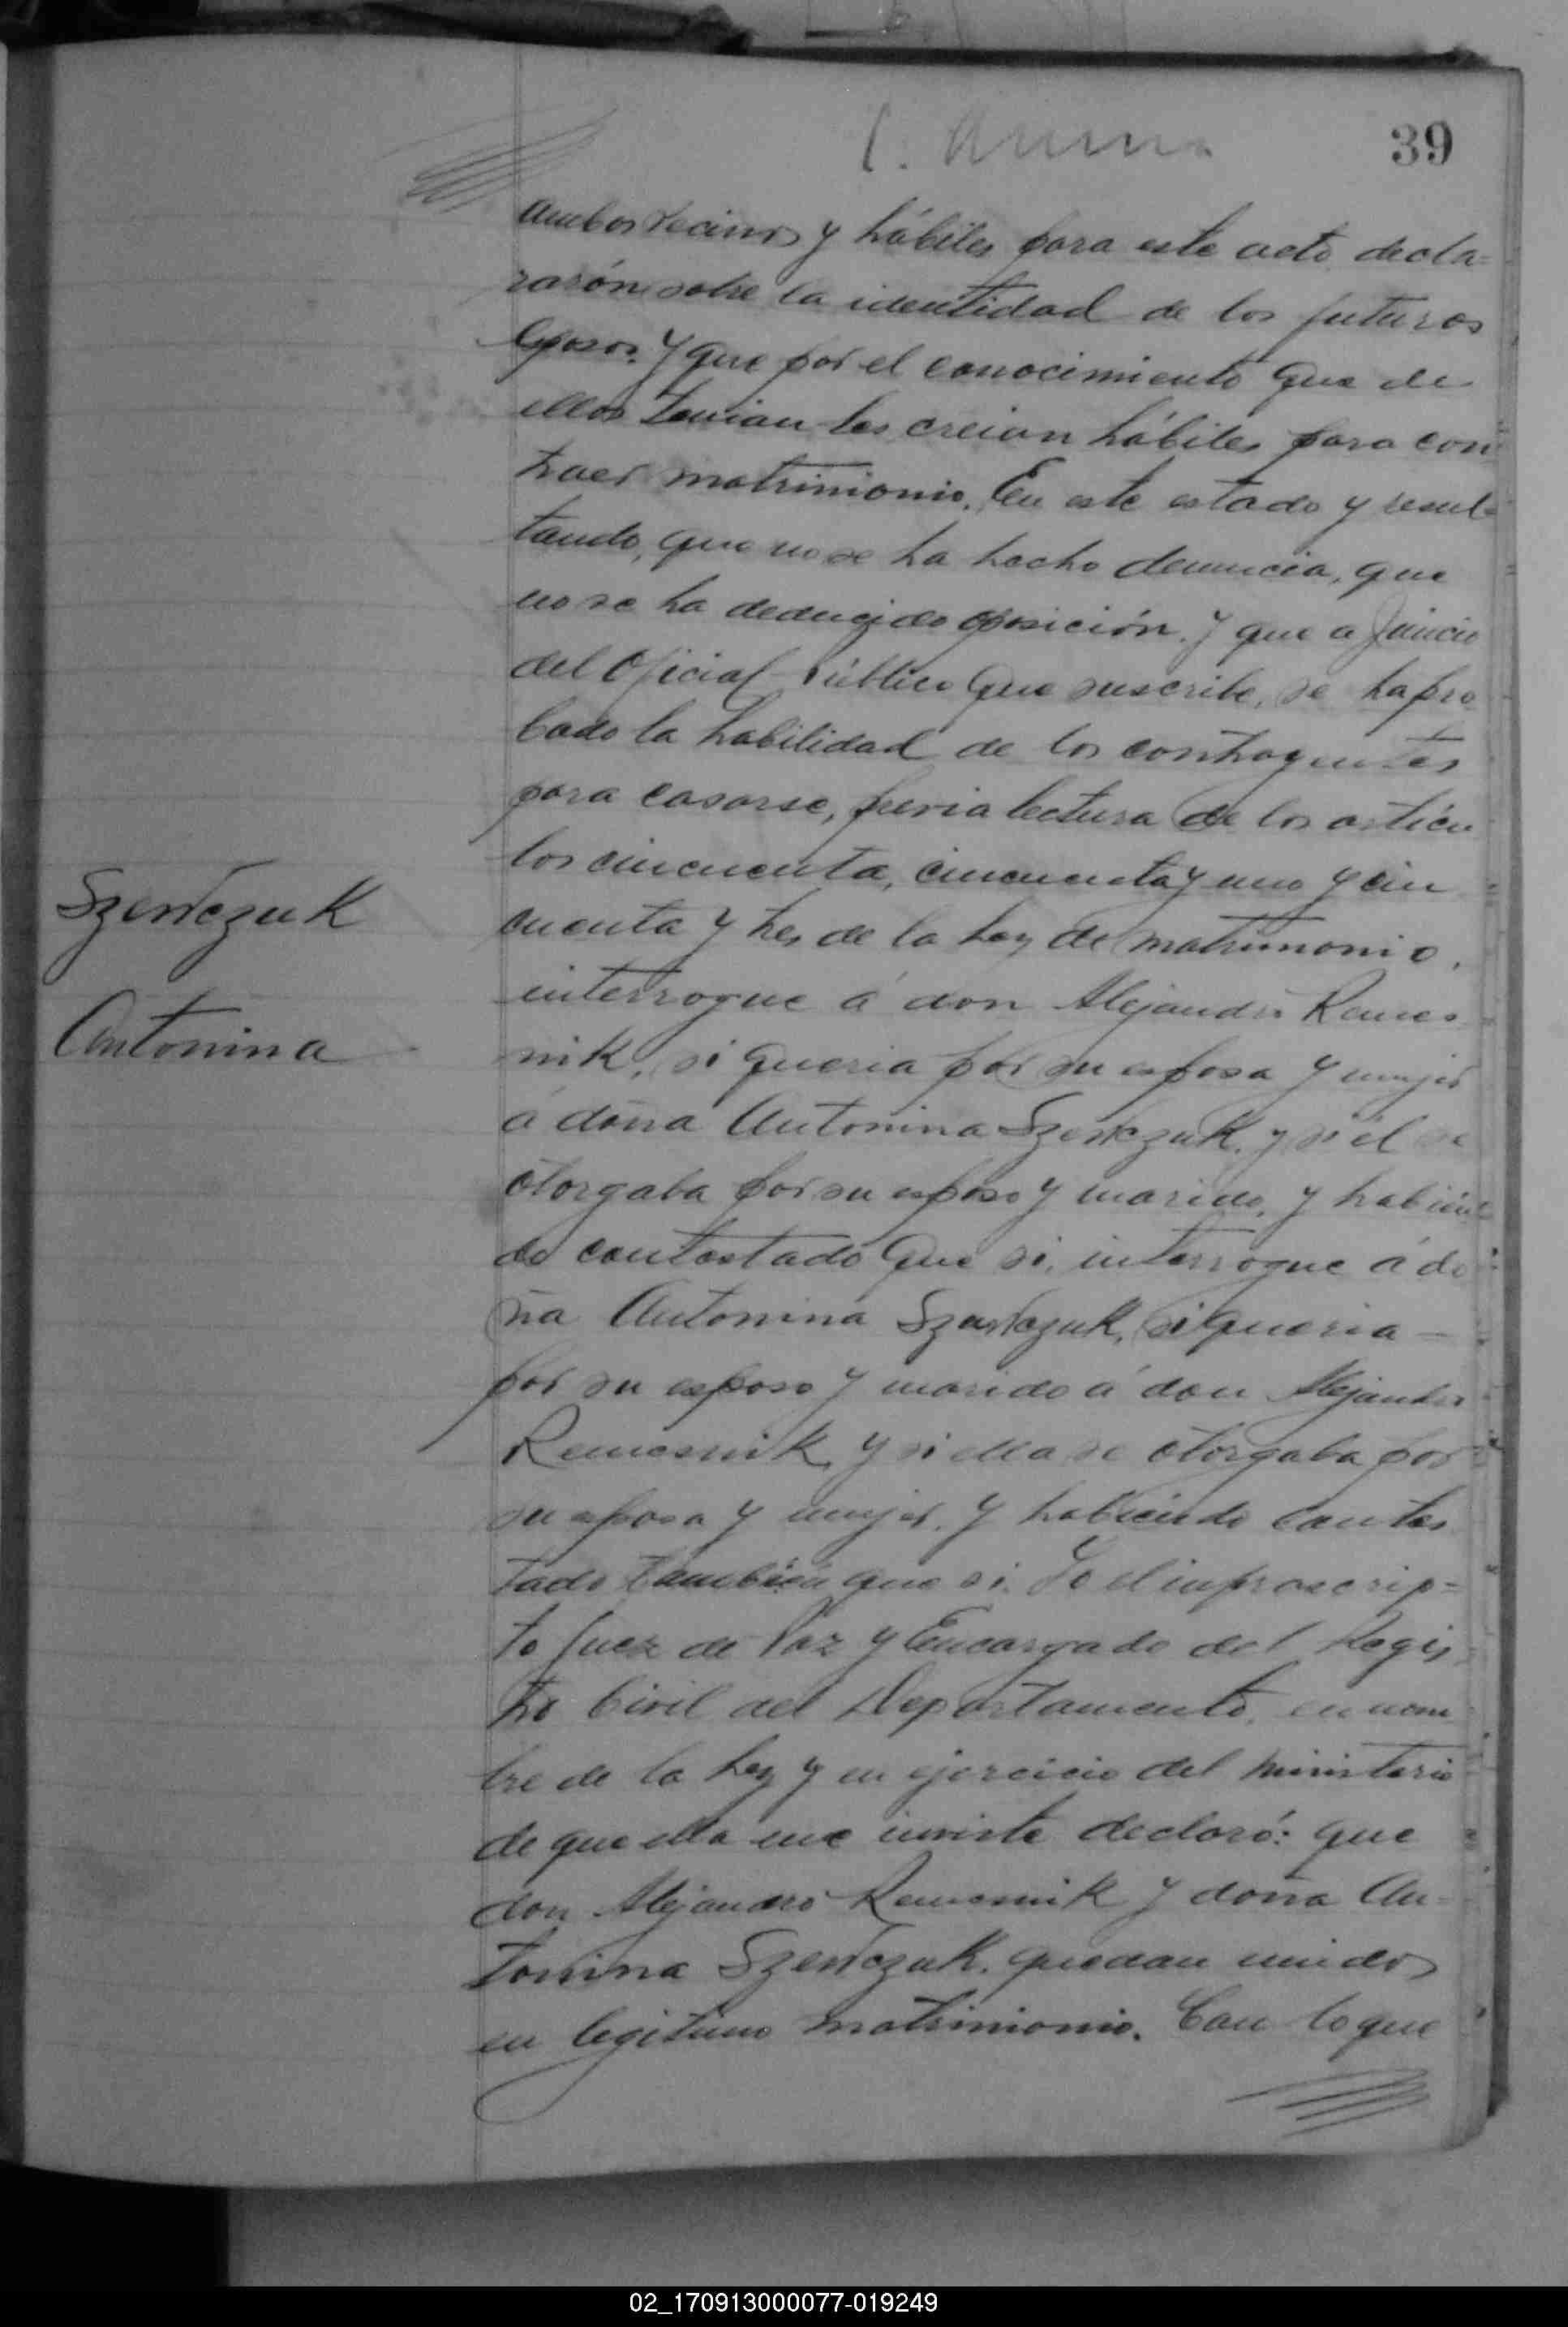 39
ambos vecinos y hábiles para este acto, decla=
rarón sobre la identidad de los futuros
esposos. Y que por el conocimiento que de
ellos tenian los creian hábiles para con
traer matrimonio. En este estado y resul=
tando, que no se ha hecho denuncia, que
no se ha deducido oposición. Y que a Juicio
del Oficial Público que suscribe, se ha pro
bado la habilidad de los contrayentes
para casarse, previa lectura de los artícu
los cincuenta, cincuenta y uno y cin
cuenta y tres de la Ley de matrimonio.
interrogue á don Alejandro Remes
nik, si queria por su esposa y mujer
á doña Antonina Szewczuk, y si él se
otorgaba por su esposo y marido, y habien=
do contestado que si, interrogue á do
ña Antonina Szewczuk, si queria —
por su esposo y marido á don Alejandro
Remesnik, y si ella se otorgaba por
su esposa y mujer. Y habiendo contes
tado tambien que si. Yo el infrascrip=
to Juez de Paz y Encargado del Regis
tro Civil del Departamento, en nom
bre de la Ley y en ejercicio del ministerio
de que ella me inviste declaró: que
don Alejandro Remesnik y doña An=
tonina Szewczuk. quedan unidos
en legitimo matrimonio. Con lo que
Szewczuk
Antonina
02_170913000077-019249